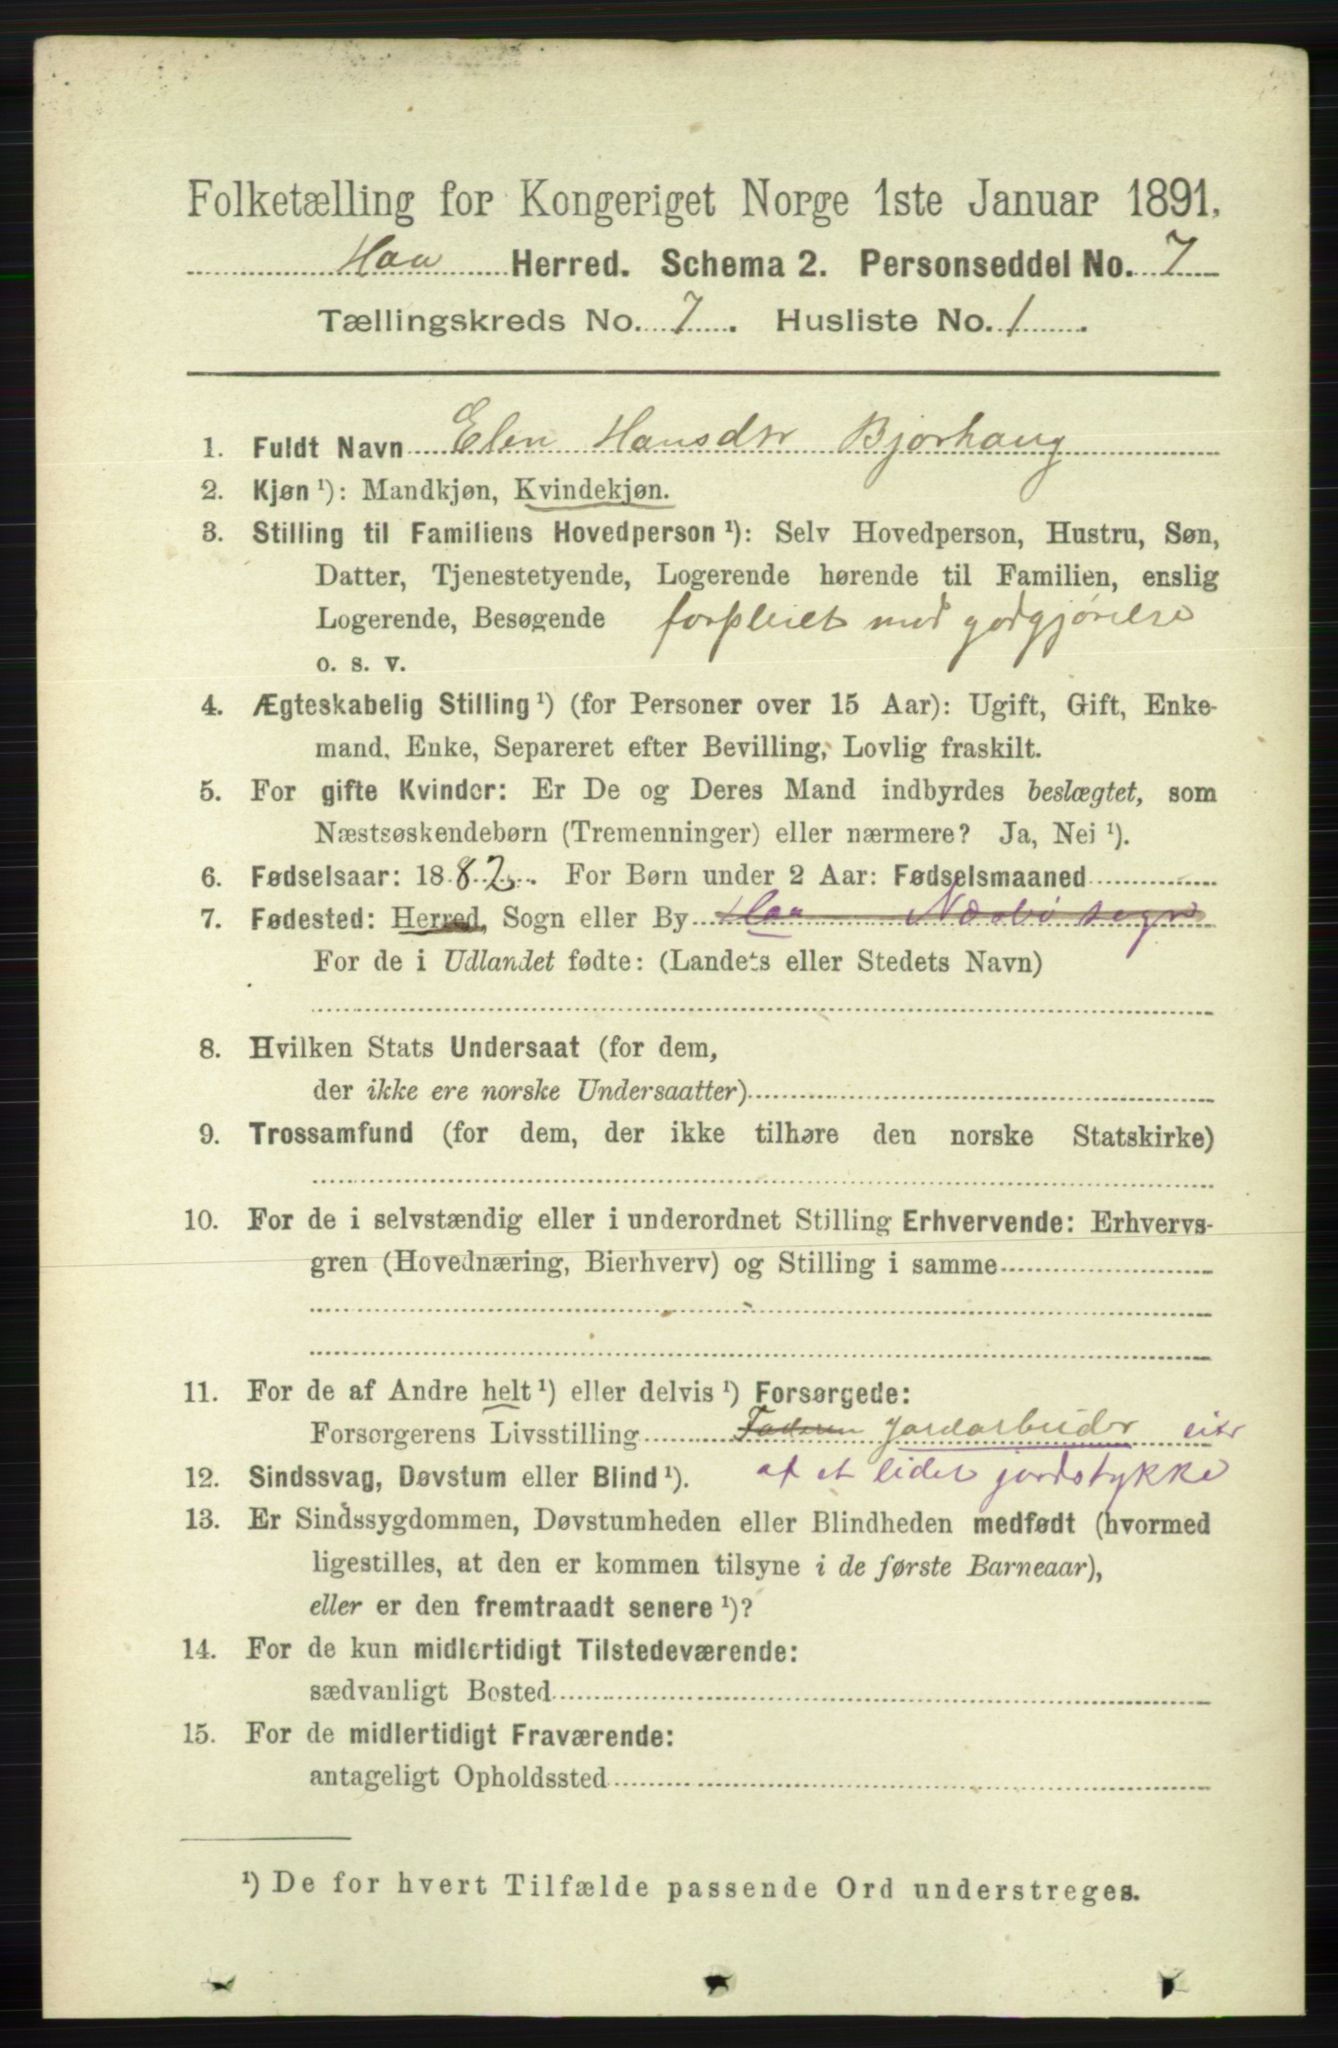 Folketælling for Kongeriget Norge 1ste Januar 1891.
Haa Herred. Schema 2. Personseddel No. 7
Tællingskreds No. 7. Husliste No. 1.
1. Fuldt Navn Elen Hansdtr Bjorhaug
2. Kjøn ¹): Mandkjøn, Kvindekjøn.
3. Stilling til Familiens Hovedperson ¹): Selv Hovedperson, Hustru, Søn,
Datter, Tjenestetyende, Logerende hørende til Familien, enslig
Logerende, Besøgende forpleiet mod godgjørelse
o. s. v.
4. Ægteskabelig Stilling ¹) (for Personer over 15 Aar): Ugift, Gift, Enke-
mand, Enke, Separeret efter Bevilling, Lovlig fraskilt.
5. For gifte Kvinder: Er De og Deres Mand indbyrdes beslægtet, som
Næstsøskendebørn (Tremenninger) eller nærmere? Ja, Nei ¹).
6. Fødselsaar: 1882. For Børn under 2 Aar: Fødselsmaaned
7. Fødested: Herred, Sogn eller By Haa Nærbø sogn
For de i Udlandet fødte: (Landets eller Stedets Navn)
8. Hvilken Stats Undersaat (for dem,
der ikke ere norske Undersaatter)
9. Trossamfund (for dem, der ikke tilhøre den norske Statskirke)
10. For de i selvstændig eller i underordnet Stilling Erhvervende: Erhvervs-
gren (Hovednæring, Bierhverv) og Stilling i samme
11. For de af Andre helt ¹) eller delvis ¹) Forsørgede:
Forsørgerens Livsstilling Faderen jordarbeider eier
12. Sindssvag, Døvstum eller Blind ¹). af et lidet jordstykke
13. Er Sindssygdommen, Døvstumheden eller Blindheden medfødt (hvormed
ligestilles, at den er kommen tilsyne i de første Barneaar),
eller er den fremtraadt senere ¹)?
14. For de kun midlertidigt Tilstedeværende:
sædvanligt Bosted
15. For de midlertidigt Fraværende:
antageligt Opholdssted
¹) De for hvert Tilfælde passende Ord understreges.